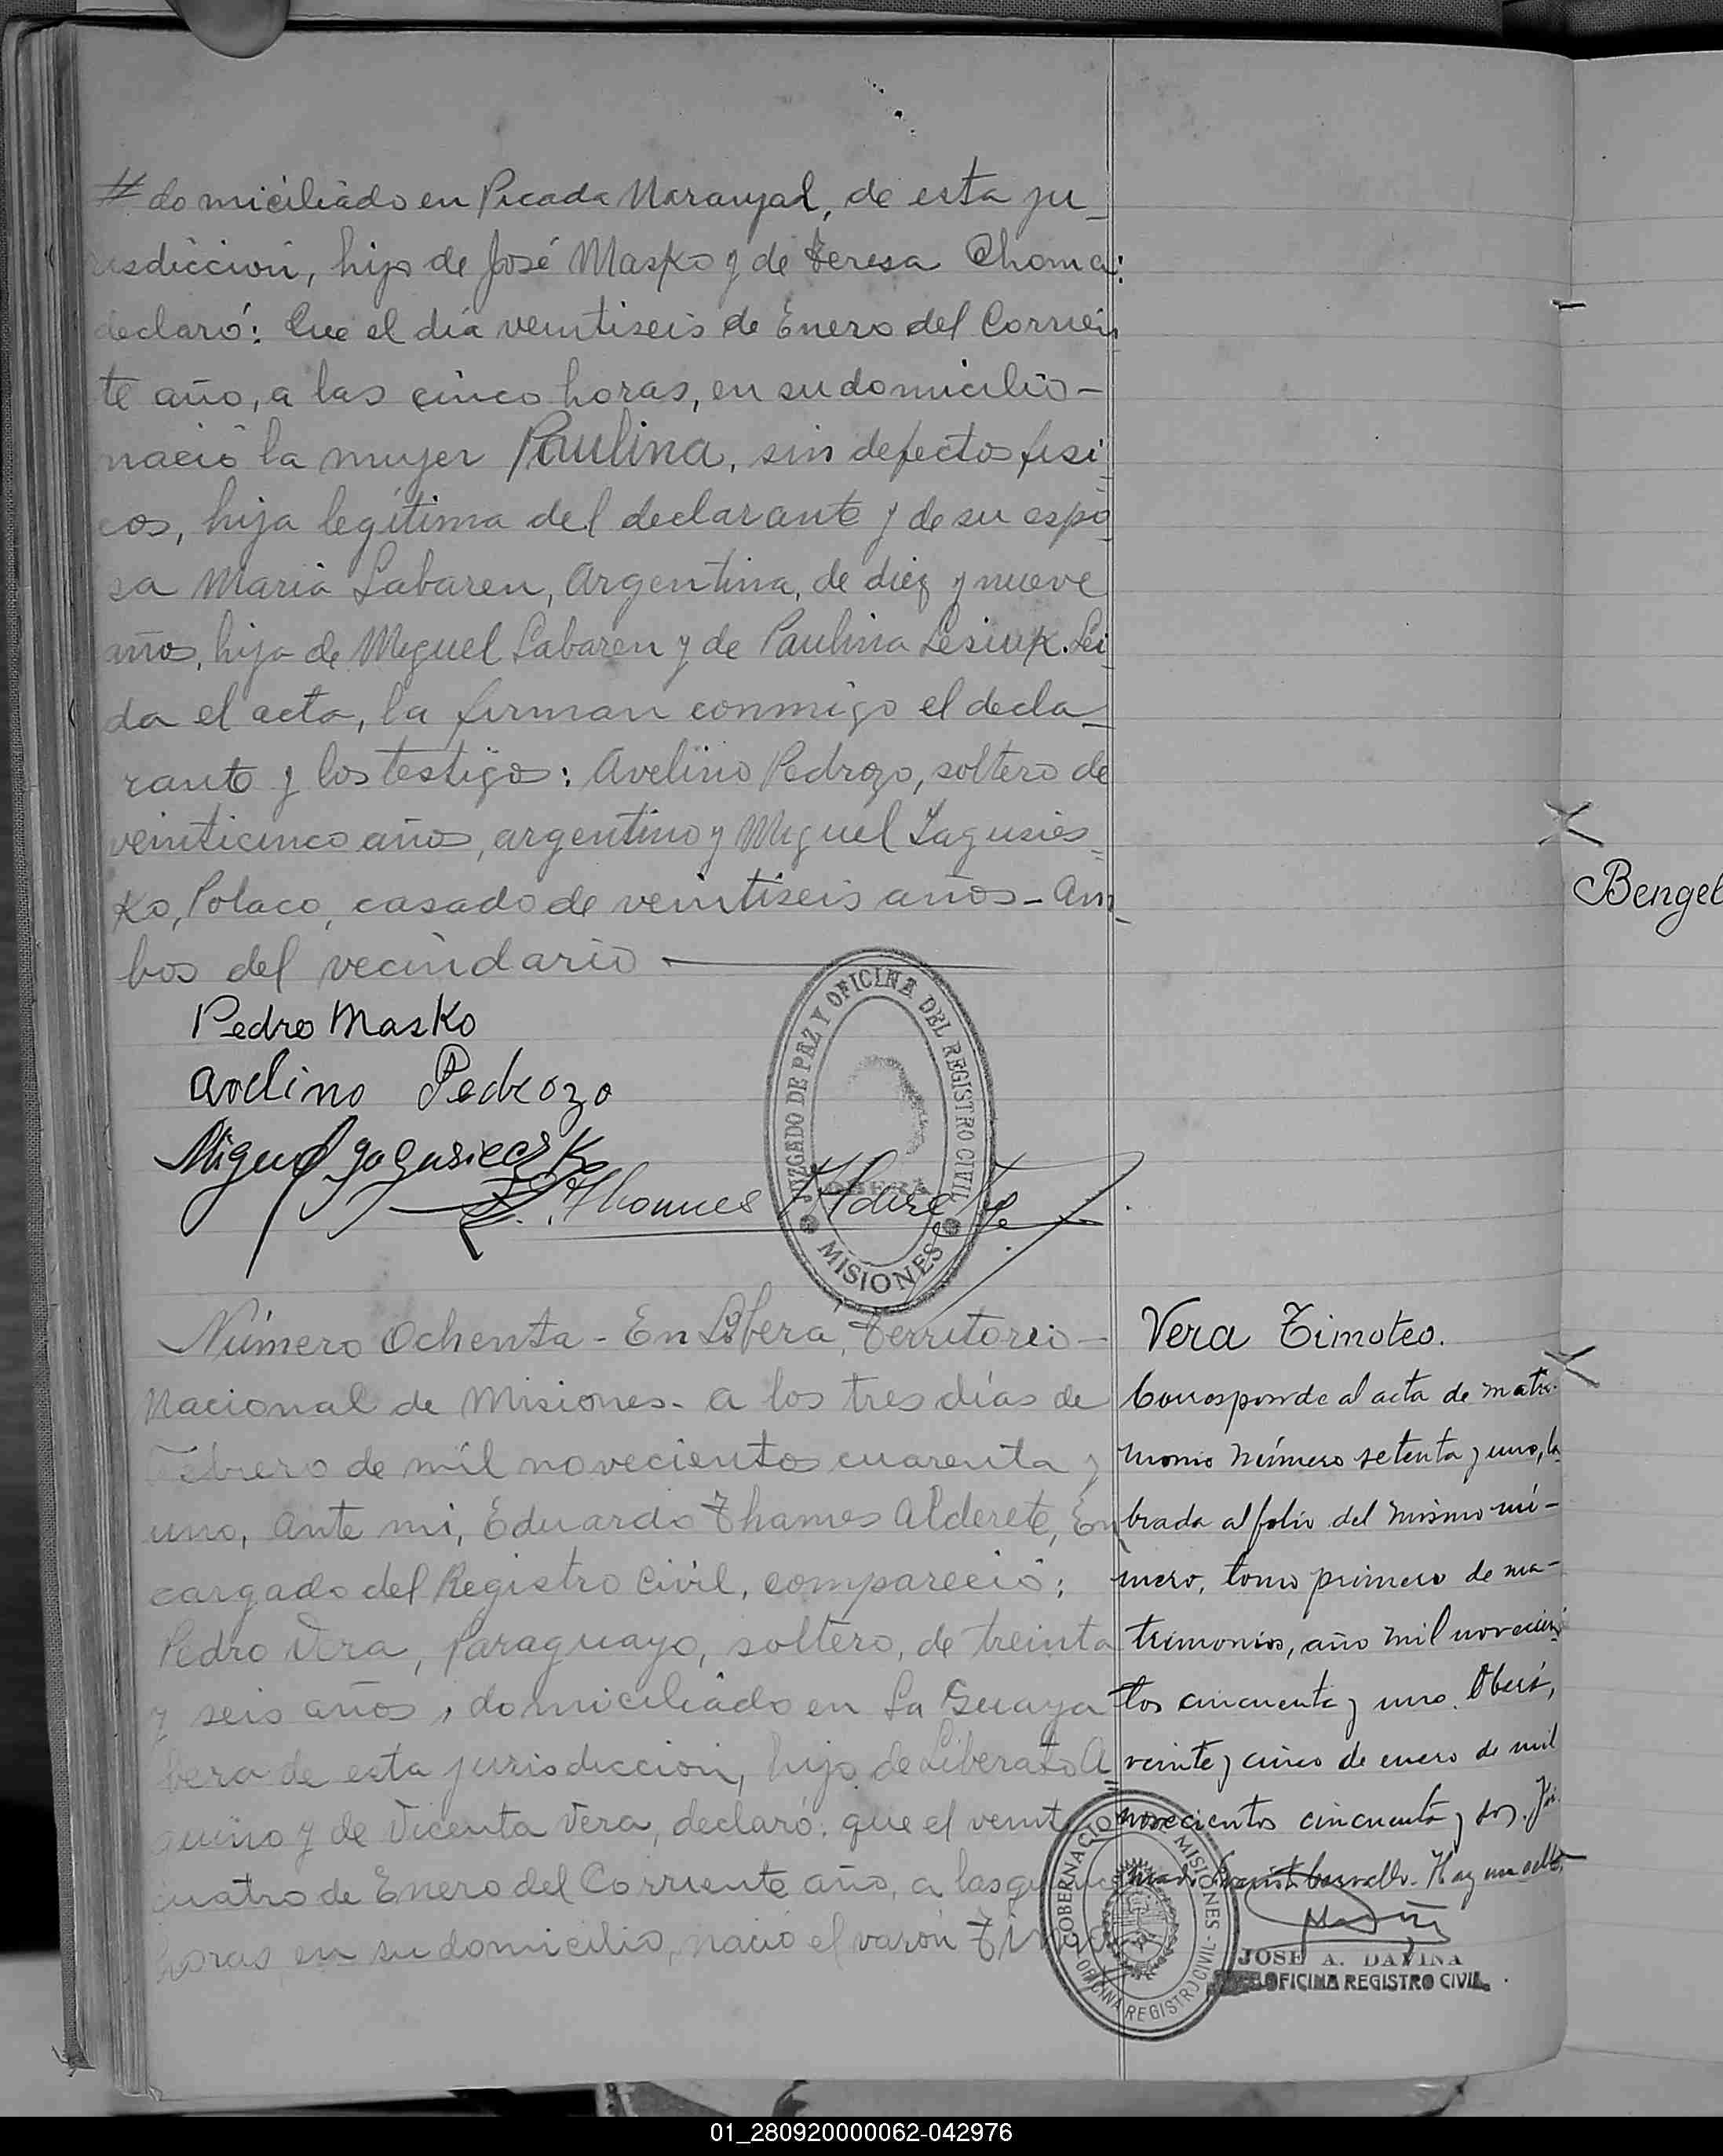 # domiciliado en Picada Naranjal, de esta ju-
risdicción, hijo de José Masko y de Teresa Choma:
declaró: Que el día veintiseis de Enero del Corrien
te año, a las cinco horas, en su domicilio-
nació la mujer Paulina, sin defectos fisi
cos, hija legítima del declarante y de su espo
sa Maria Labaren, Argentina, de diez y nueve
años, hija de Miguel Labaren y de Paulina Lesiuk. Lei
da el acta, la firman conmigo el decla-
rante y los testigos: Avelino Pedrozo, soltero de
veinticinco años, argentino y Miguel Yagusies-
ko, Polaco, casado de veintiseis años- Am-
bos del vecindario
Pedro Masko
Avelino Pedrozo
Miguel
Thames Alderete
JUZGADO DE PAZ Y OFICINA DEL REGISTRO CIVIL
OBERÁ
MISIONES
Número Ochenta- En Obera, Territorio-
Nacional de Misiones- a los tres días de
Febrero de mil novecientos cuarenta y
uno, Ante mi, Eduardo Thames Alderete, En
cargado del Registro Civil, compareció:
Pedro Vera, Paraguayo, soltero, de treinta
y seis años, domiciliado en La Guaya
bera de esta jurisdiccion, hijo de Liberato A
quino y de Vicenta Vera, declaró: que el veinti
cuatro de Enero del Corriente año, a las quince
horas, en su domicilio, nació el varón
Vera Timoteo.
Corresponde al acta de matri-
monio número setenta y uno, la
brada al folio del mismo nú-
mero, tomo primero de ma-
trimonios, año mil novecien
tos cincuenta y uno. Oberá,
veinte y cinco de enero de mil
novecientos cincuenta y dos. Fir
mado Carvallo. Hay un sello.
GOBERNACION MISIONES
OFICINA REGISTRO CIVIL
JOSE A. DAVIÑA
OFICINA REGISTRO CIVIL
Bengel
01_280920000062-042976